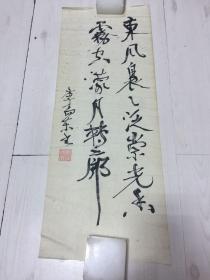 東風裊々泛崇光香
霧空濛月轉廊